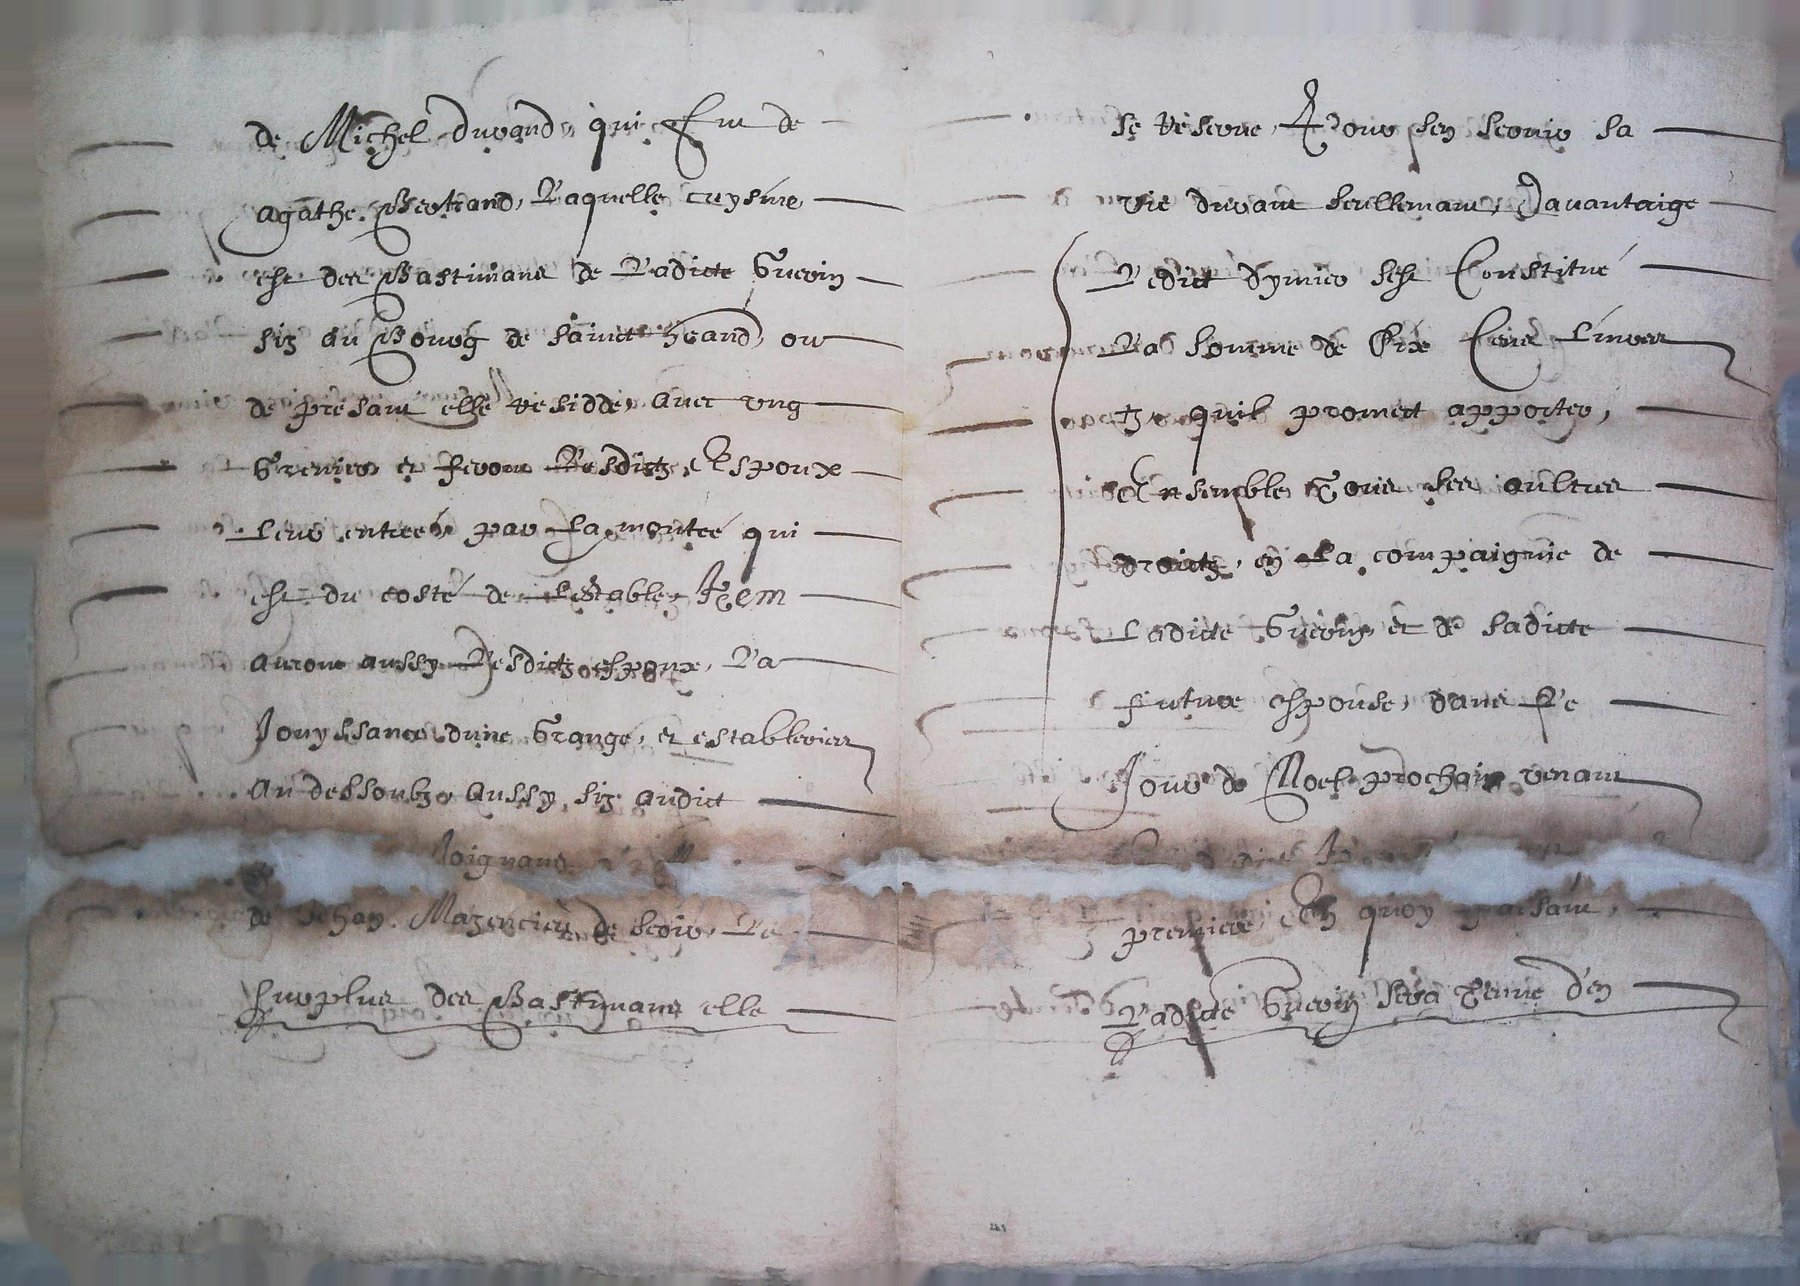 de Michel durand, qui fut de
agathe Bertrand, Laquelle cuysine
est des Bastimans de Ladicte Guerin
siz au Bourg de sainct heand, ou
de presant elle residde, avec ung
Grenier, et feront Lesdictz Espoux
Leur entree par La montée qui
est du costé de Lestable, Item
auront aussy Lesdictz espoux, La
Jouyssance dune Grange, et estableries
au dessoubz aussy siz audict
Joignans
de Jehan Mazencieu de soir, Le
surplus des Bastimans elle
se reserve, Pour sen servir sa
vie durant seullemant, Davantaige
Ledict dymier sest Constitué
La somme de Six Cens Livres
tz, quil promect apporter,
Ensemble Tous ses aultres
droictz, en La compaignie de
Ladicte Guerin, et de sadicte
future espouse, dans Le
Jour de Noel prochain venant
premiere, En quoy faisant,
Ladicte Guerin sera Tenue d'en